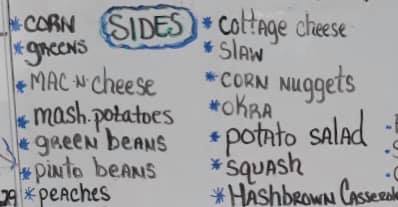 SIDES
* CORN
* gReeNS
* MAC·N·cheese
* mash.potatoes
* gReeN beANS
* piNto beANS
* peAches
* Cottage cheese
* SlAW
* CORN Nuggets
* OKRA
* potAto SALAd
* SQUASh
* HAShbROWN
29